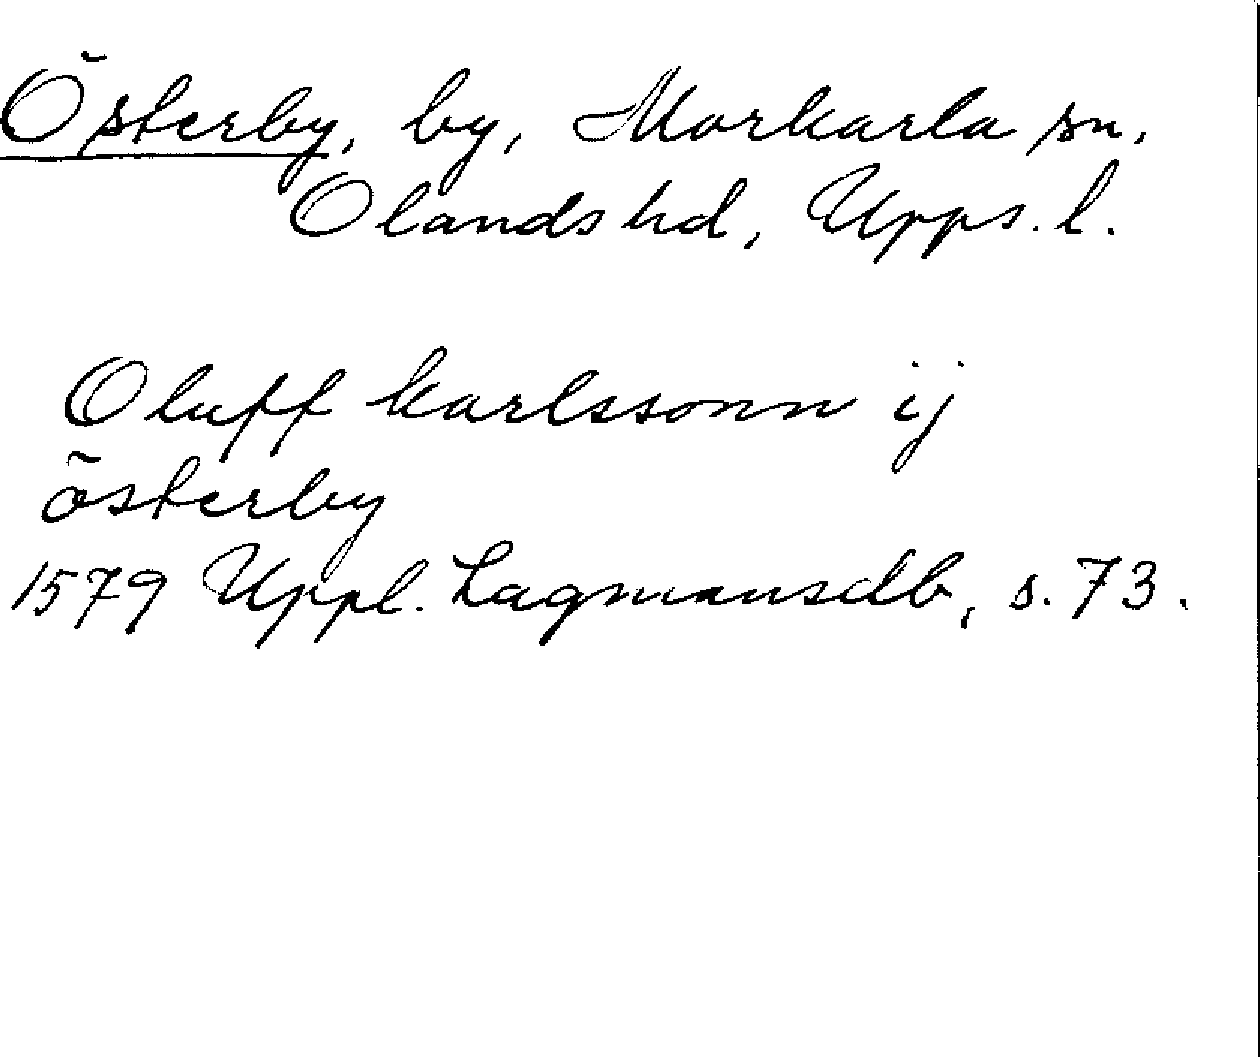 Österby, by, Morkarla sn,
Olands hd, Upps. l.
Oluff karlssonn ij
österby
1579 Uppl. Lagmansdb, s. 73.